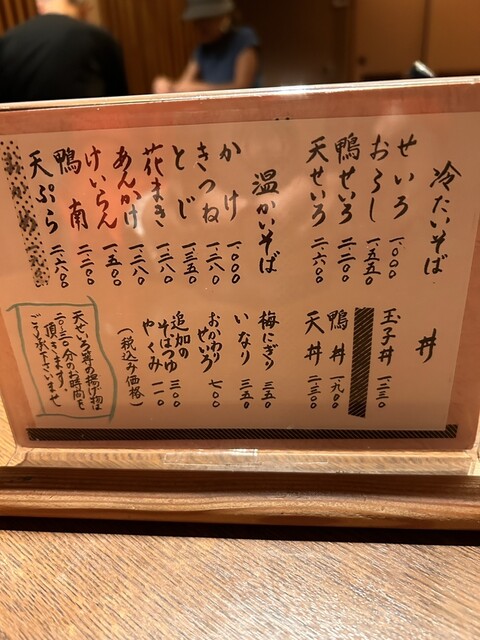 冷たいそば
せいろ 一.〇〇〇
おろし 一.五五〇
鴨せいろ 二.二〇〇
天せいろ 二.六〇〇
温かいそば
かけ 一.〇〇〇
きつね 一.二八〇
とじ 一.三五〇
花まき 一.三八〇
あんかけ 一.三八〇
けいらん 一.五〇〇
鴨南 二.二〇〇
天ぷら 二.六〇〇
丼
玉子丼 一.二三〇
鴨丼 一.九〇〇
天丼 二.三〇〇
梅にぎり 三五〇
いなり 三五〇
おかわりせいろ 七〇〇
追加のそばつゆ 三〇〇
やくみ 一一〇
(税込み価格)
天せいろ等の揚げ物は
二〇~三〇分のお時間を
頂きます。
ご了承下さいませ